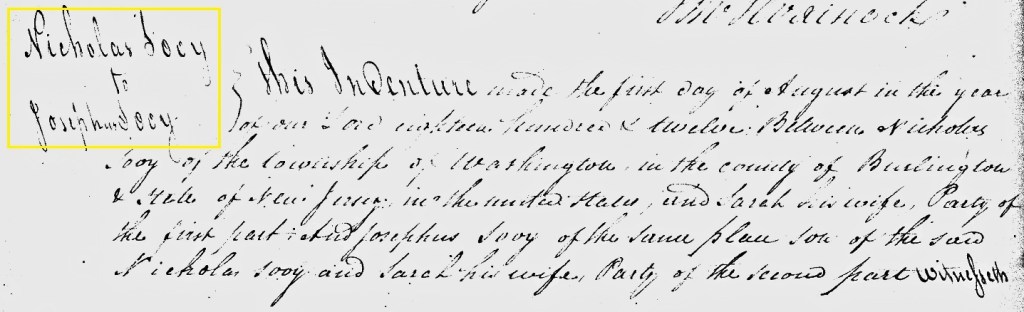 Nicholas Sooy
to
Josephus Sooy
This Indenture made the first day of August in the year
of our Lord eighteen hundred & twelve. Between Nicholas
Sooy of the township of Washington in the county of Burlington
& State of New Jersey in the united States, and Sarah his wife, Party of
the first part: And Josephus Sooy of the same place son of the said
Nicholas Sooy and Sarah his wife, Party of the second part Witnesseth